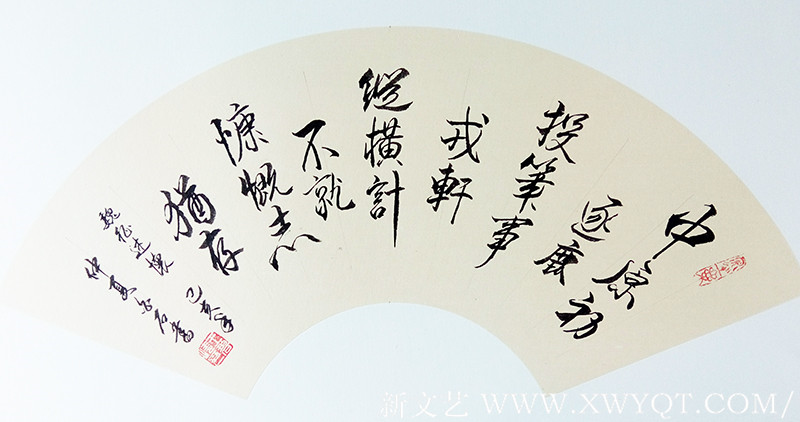 中原初
逐鹿
投筆事
戎軒
縱橫計
不就
慷慨志
猶存
魏征述懷
己亥年
仲夏
新文艺 WWW.XWYQT.COM/